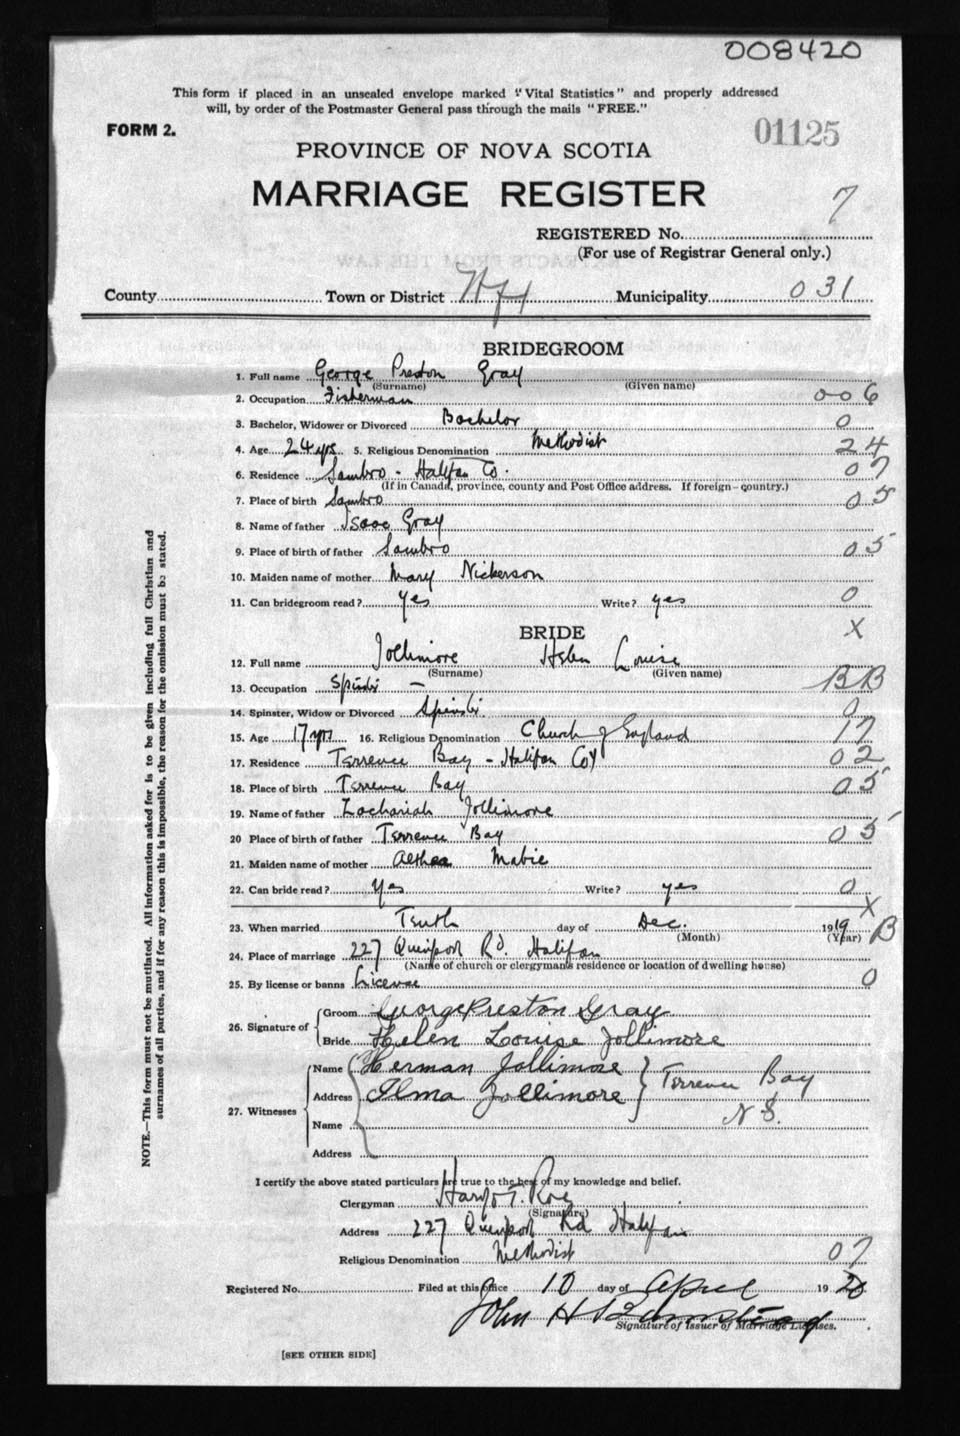 008420
This form if placed in an unsealed envelope marked "Vital Statistics" and properly addressed
will, by order of the Postmaster General pass through the mails "FREE."
FORM 2.
01125
PROVINCE OF NOVA SCOTIA
MARRIAGE REGISTER
7
REGISTERED No.
(For use of Registrar General only.)
County Town or District Hfx Municipality 031
BRIDEGROOM
1. Full name George Preston Gray
(Surname) (Given name)
2. Occupation Fisherman 006
3. Bachelor, Widower or Divorced Bachelor 0
4. Age 24 yrs 5. Religious Denomination Methodist 24
6. Residence Sambro - Halifax Co. 07
(If in Canada, province, county and Post Office address. If foreign—country.)
7. Place of birth Sambro 05
8. Name of father Isaac Gray
9. Place of birth of father Sambro 05
10. Maiden name of mother Mary Nickerson
11. Can bridegroom read? Yes Write? yes 0
BRIDE X
12. Full name Jollimore Helen Louise
(Surname) (Given name)
13. Occupation Spinster — BB
14. Spinster, Widow or Divorced Spinster 0
15. Age 17 yrs 16. Religious Denomination Church of England 17
17. Residence Terrence Bay - Halifax Coy 02
18. Place of birth Terrence Bay 05
19. Name of father Zachariah Jollimore
20 Place of birth of father Terrence Bay 05
21. Maiden name of mother Aethea Mabie
22. Can bride read? Yes Write? yes 0
X
23. When married Tenth day of Dec. 1919 B
(Month) (Year)
24. Place of marriage 227 Quinpool Rd. Halifax
(Name of church or clergyman's residence or location of dwelling house)
25. By license or banns License 0
26. Signature of Groom George Preston Gray
Bride Helen Louise Jollimore
27. Witnesses Name Herman Jollimore
Address Ilma Jollimore Terrence Bay
Name N S.
Address
I certify the above stated particulars are true to the best of my knowledge and belief.
Clergyman Harry T. Roe
(Signature)
Address 227 Quinpool Rd Halifax
Religious Denomination Methodist 07
Registered No. Filed at this office 10 day of April 1920
John H
Signature of Issuer of Marriage Licenses.
[SEE OTHER SIDE]
NOTE.—This form must not be mutilated. All information asked for is to be given including full Christian and
surnames of all parties, and if for any reason this is impossible, the reason for the omission must be stated.